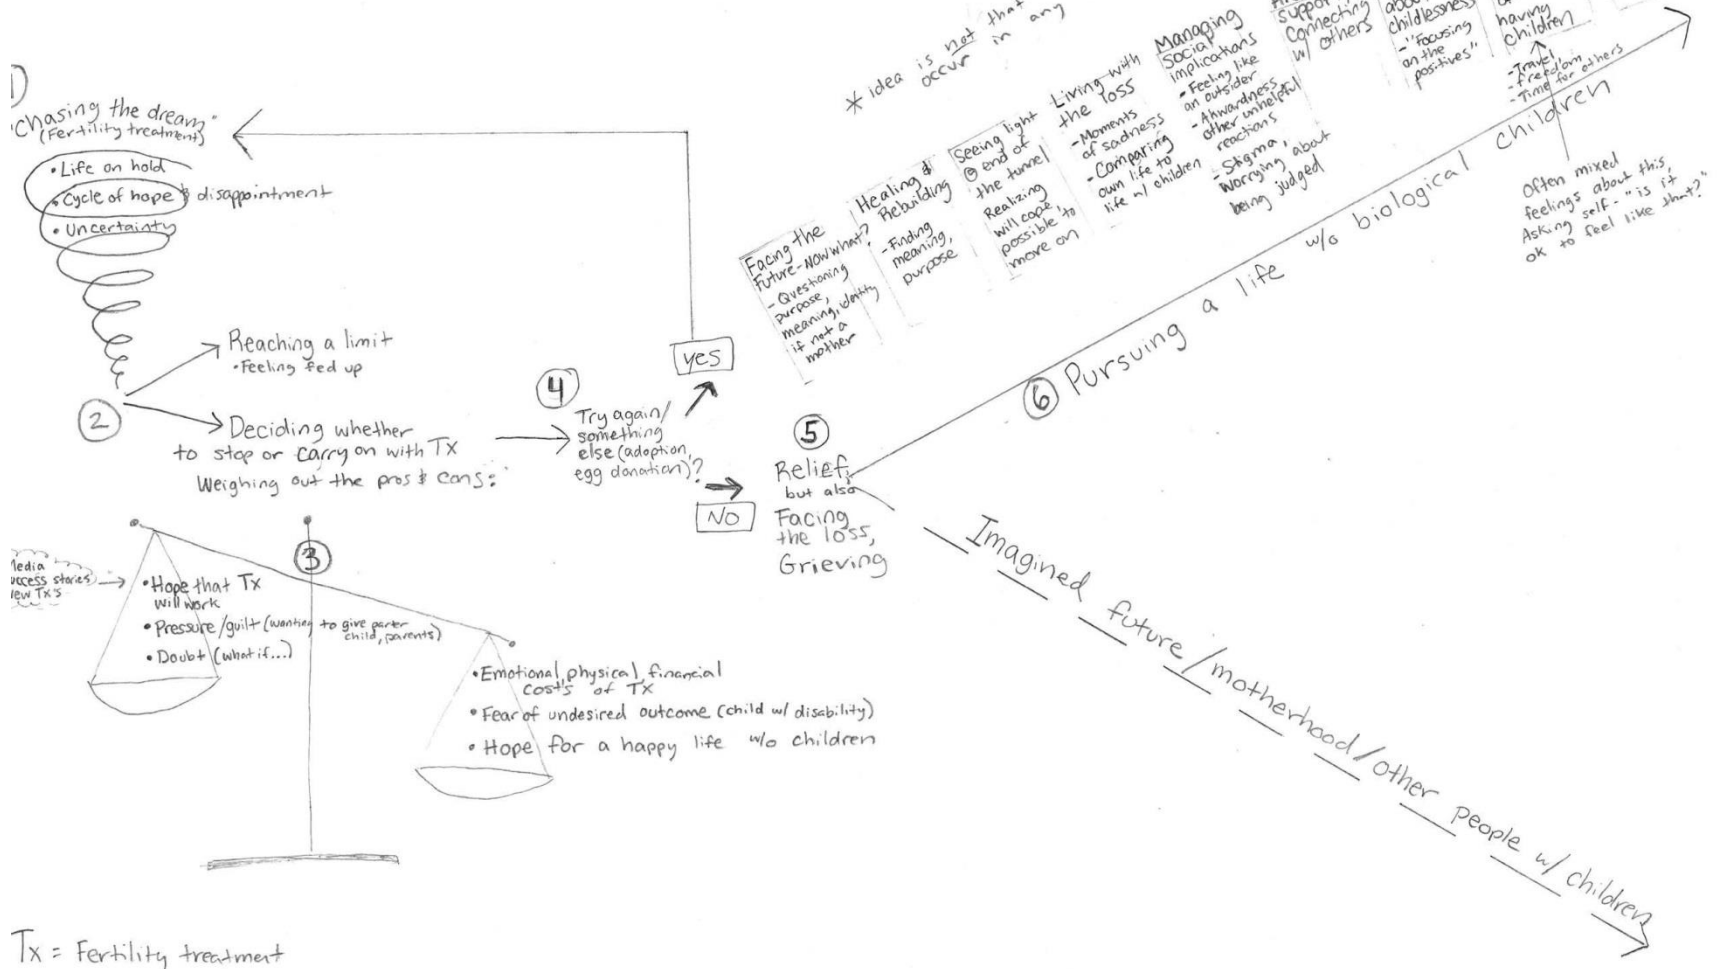 1
"Chasing the dream"
(Fertility treatment)
• Life on hold
• Cycle of hope & disappointment
• Uncertainty
2
Reaching a limit
• Feeling fed up
Deciding whether
to stop or carry on with Tx
Weighing out the pros & cons:
3
Media
success stories
new Tx's
• Hope that Tx
will work
• Pressure/guilt (wanting to give parter
child, parents)
• Doubt (what if...)
• Emotional, physical, financial
cost's of Tx
• Fear of undesired outcome (child w/ disability)
• Hope for a happy life w/o children
4
Try again/
something
else (adoption,
egg donation)?
yes
No
5
Relief,
but also
Facing
the loss,
Grieving
6 Pursuing a life w/o biological children
* idea is not that
occur in any
Facing the
Future - Now what?
- Questioning
purpose,
meaning, identity
if not a
mother
Healing &
Rebuilding
- Finding
meaning,
purpose
Seeing light
@ end of
the tunnel
Realizing
will cope,
possible to
move on
Living with
the loss
- Moments
of sadness
- Comparing
own life to
life w/ children
Managing
Social
implications
- Feeling like
an outsider
- Akwardness,
other unhelpful
reactions
- Stigma,
Worrying about
being judged
support
Connecting
w/ others
about
childlessness
- "Focusing
on the
positives"
having
children
- Travel
- freedom
- Time for others
Often mixed
feelings about this,
Asking self - "is it
ok to feel like that?"
Imagined future/motherhood/other people w/ children
Tx = Fertility treatment